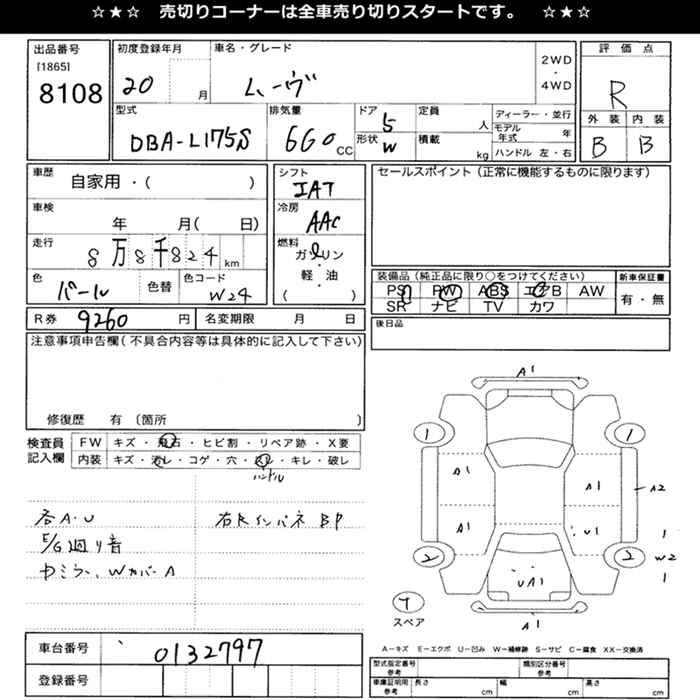 ☆★☆ 売切りコーナーは全車売り切りスタートです。 ☆★☆
出品番号
[1865]
8108
初度登録年月
20 月
車名・グレード
ムーヴ
2WD
・
4WD
評価点
R
外装 内装
B B
型式
DBA-L175S
排気量
660 cc
ドア 5
形状 W
定員 人
積載 kg
ディーラー・並行
モデル年式 年
ハンドル 左・右
車歴
自家用・( )
車検
年 月( 日)
走行
8万8千824 km
色
パール
色替
色コード
W24
シフト
IAT
冷房
AAC
燃料
ガソリン
・
軽・油
( )
セールスポイント(正常に機能するものに限ります)
装備品(純正品に限り○をつけてください)
PS PW ABS エアB AW
SR ナビ TV カワ
新車保証書
有・無
後日品
R券 9260 円
名変期限 月 日
注意事項申告欄(不具合内容等は具体的に記入して下さい)
修復歴 有 〔箇所 〕
検査員
記入欄
FW キズ・飛石・ヒビ割・リペア跡・X要
内装 キズ・汚レ・コゲ・穴・スレ・キレ・破レ
ハンドル
各A・U
E/G廻り音
右Rインパネ BP
A1
1 1
A1 A1
A2
A1 U1
1
2 2
W2
UA1
1
T
スペア
A1
A-キズ E-エクボ U-凹み W-補修跡 S-サビ C-腐食 XX-交換済
車台番号
0132797
登録番号
型式指定番号
参考
類別区分番号
参考
車庫証明用
参考
長さ cm
幅 cm
高さ cm